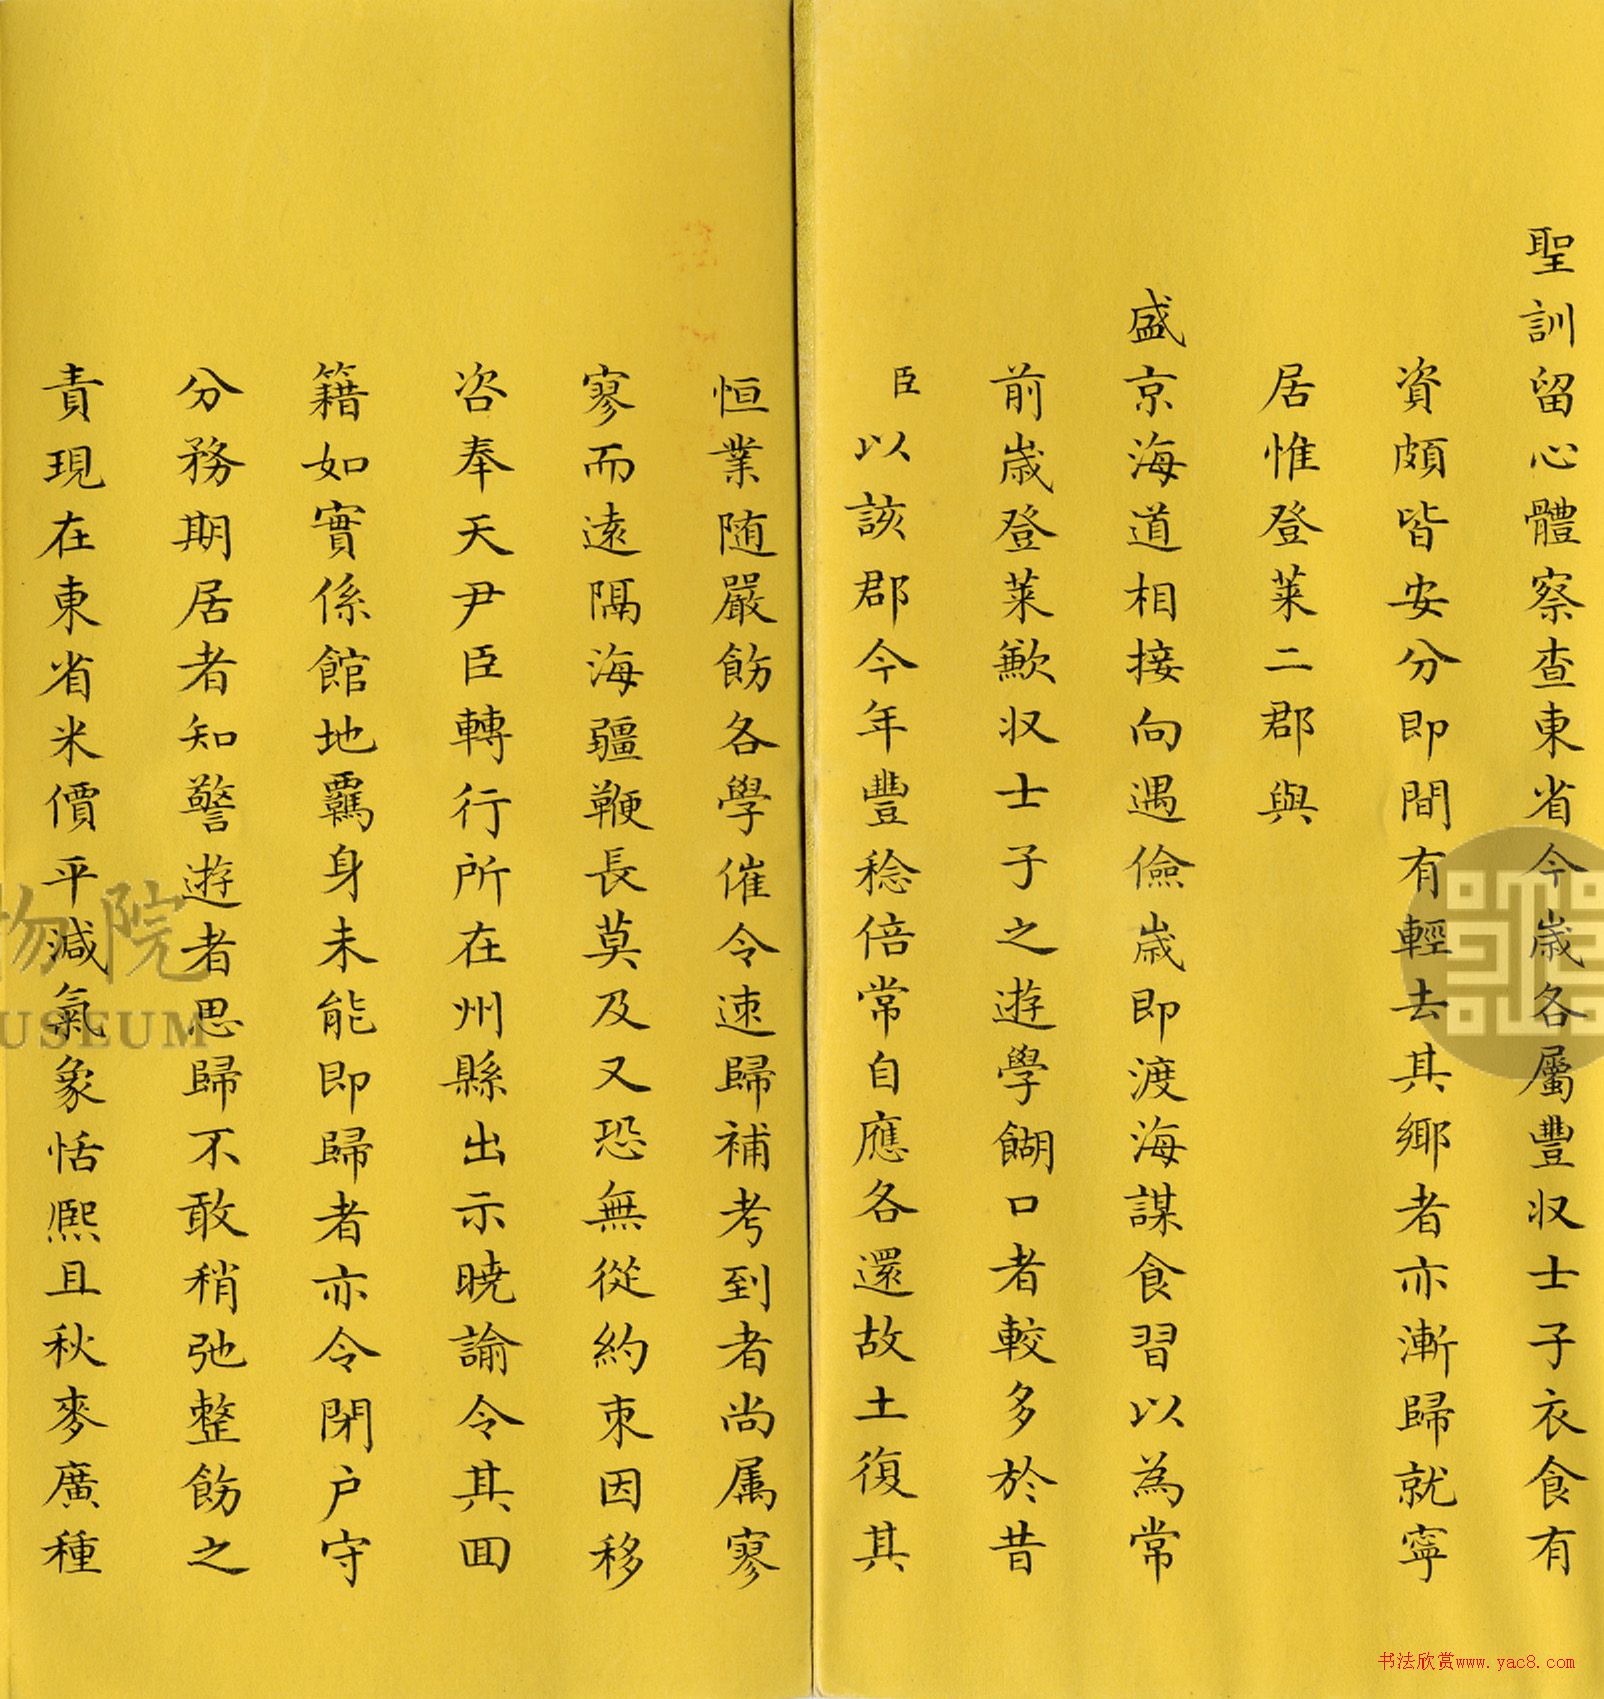 聖訓留心體察查東省今歳各屬豐収士子衣食有
資頗皆安分即間有輕去其鄉者亦漸歸就寧
居惟登萊二郡與
盛京海道相接向遇儉歳即渡海謀食習以為常
前歳登萊歉収士子之遊學餬口者較多於昔
臣以該郡今年豐稔倍常自應各還故土復其
恒業随嚴飭各學催令速歸補考到者尚属寥
寥而遠隔海疆鞭長莫及又恐無從約束因移
咨奉天尹臣轉行所在州縣出示曉諭令其囬
籍如實係館地羈身未能即歸者亦令閉户守
分務期居者知警遊者思歸不敢稍弛整飭之
責現在東省米價平減氣象恬熙且秋麥廣種
物院
MUSEUM
书法欣赏www.yac8.com